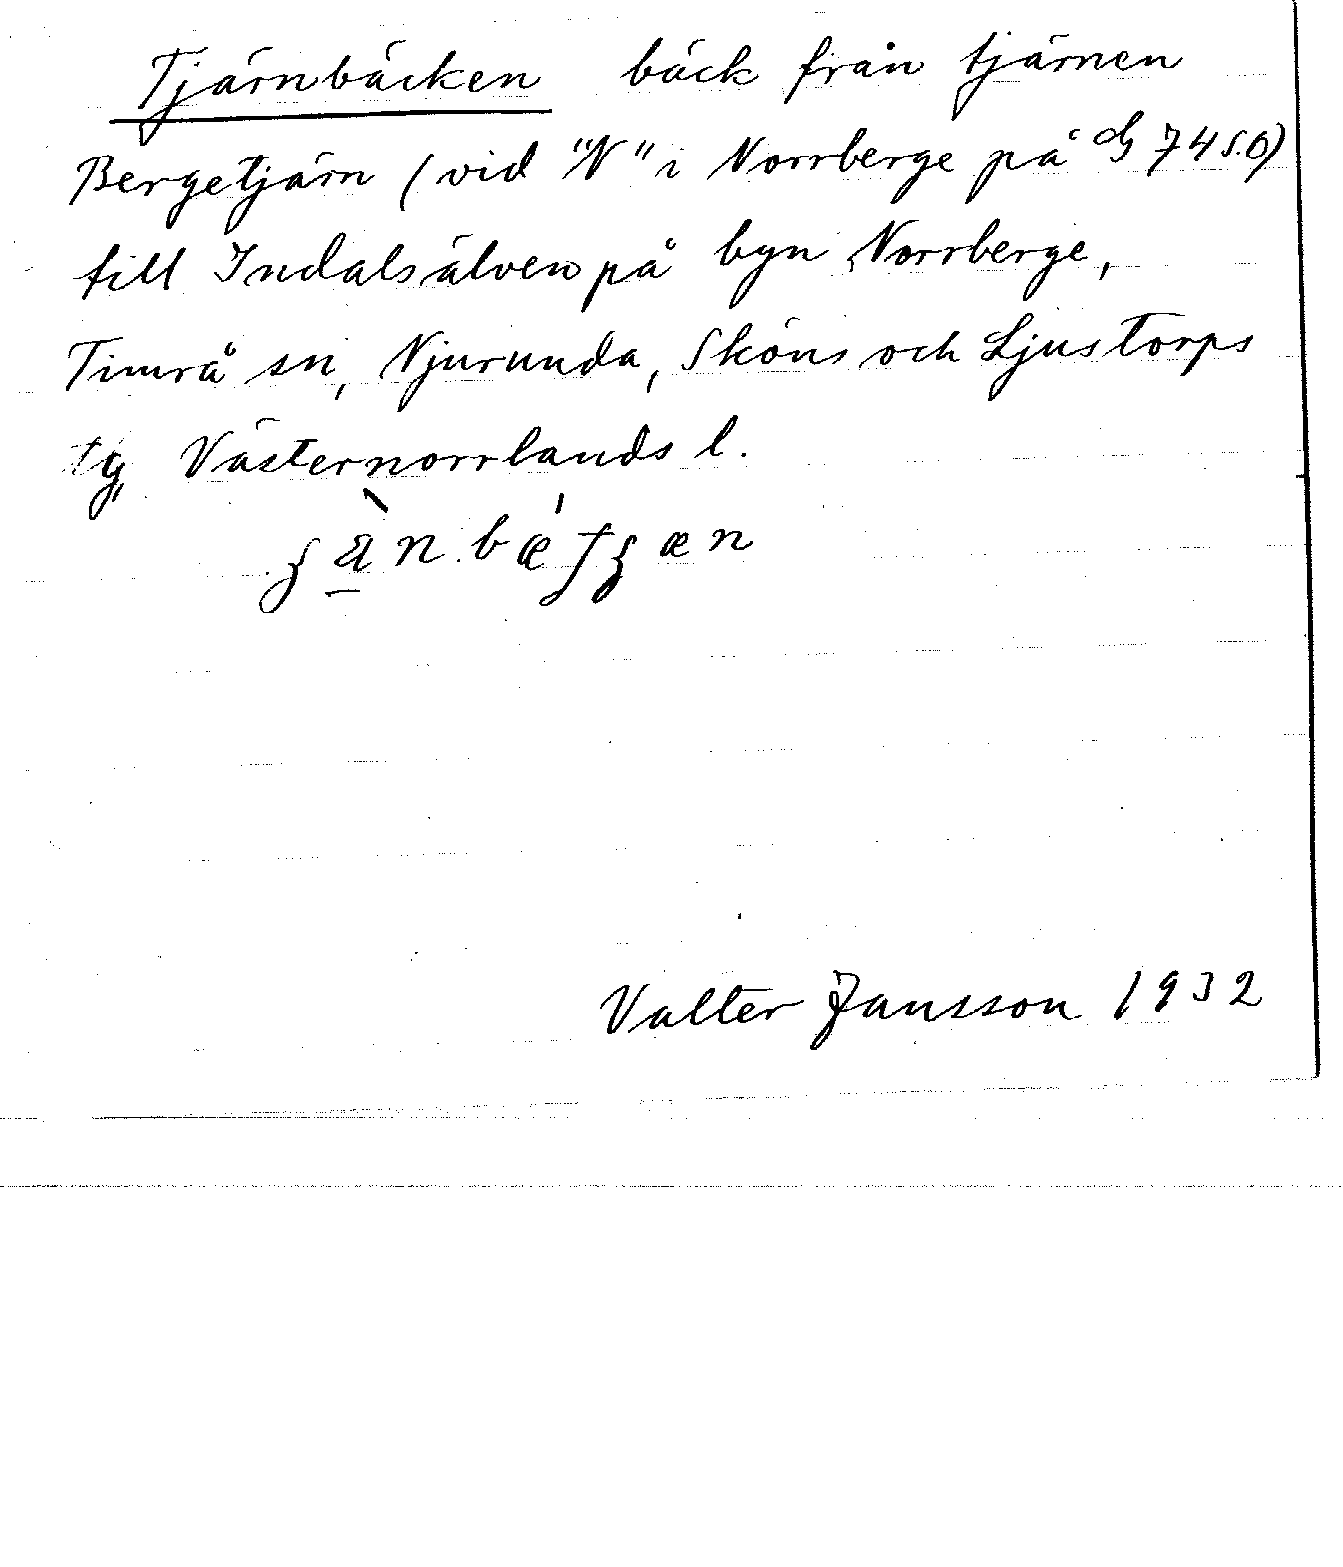 Tjärnbäcken bäck från tjärnen
Bergetjärn (vid "N" i Norrberge på G 74 S.O)
till Indalsälven på byn Norrberge,
Timrå sn, Njurunda, Sköns och Ljustorps
tg, Västernorrlands l.
Valter Jansson 1932